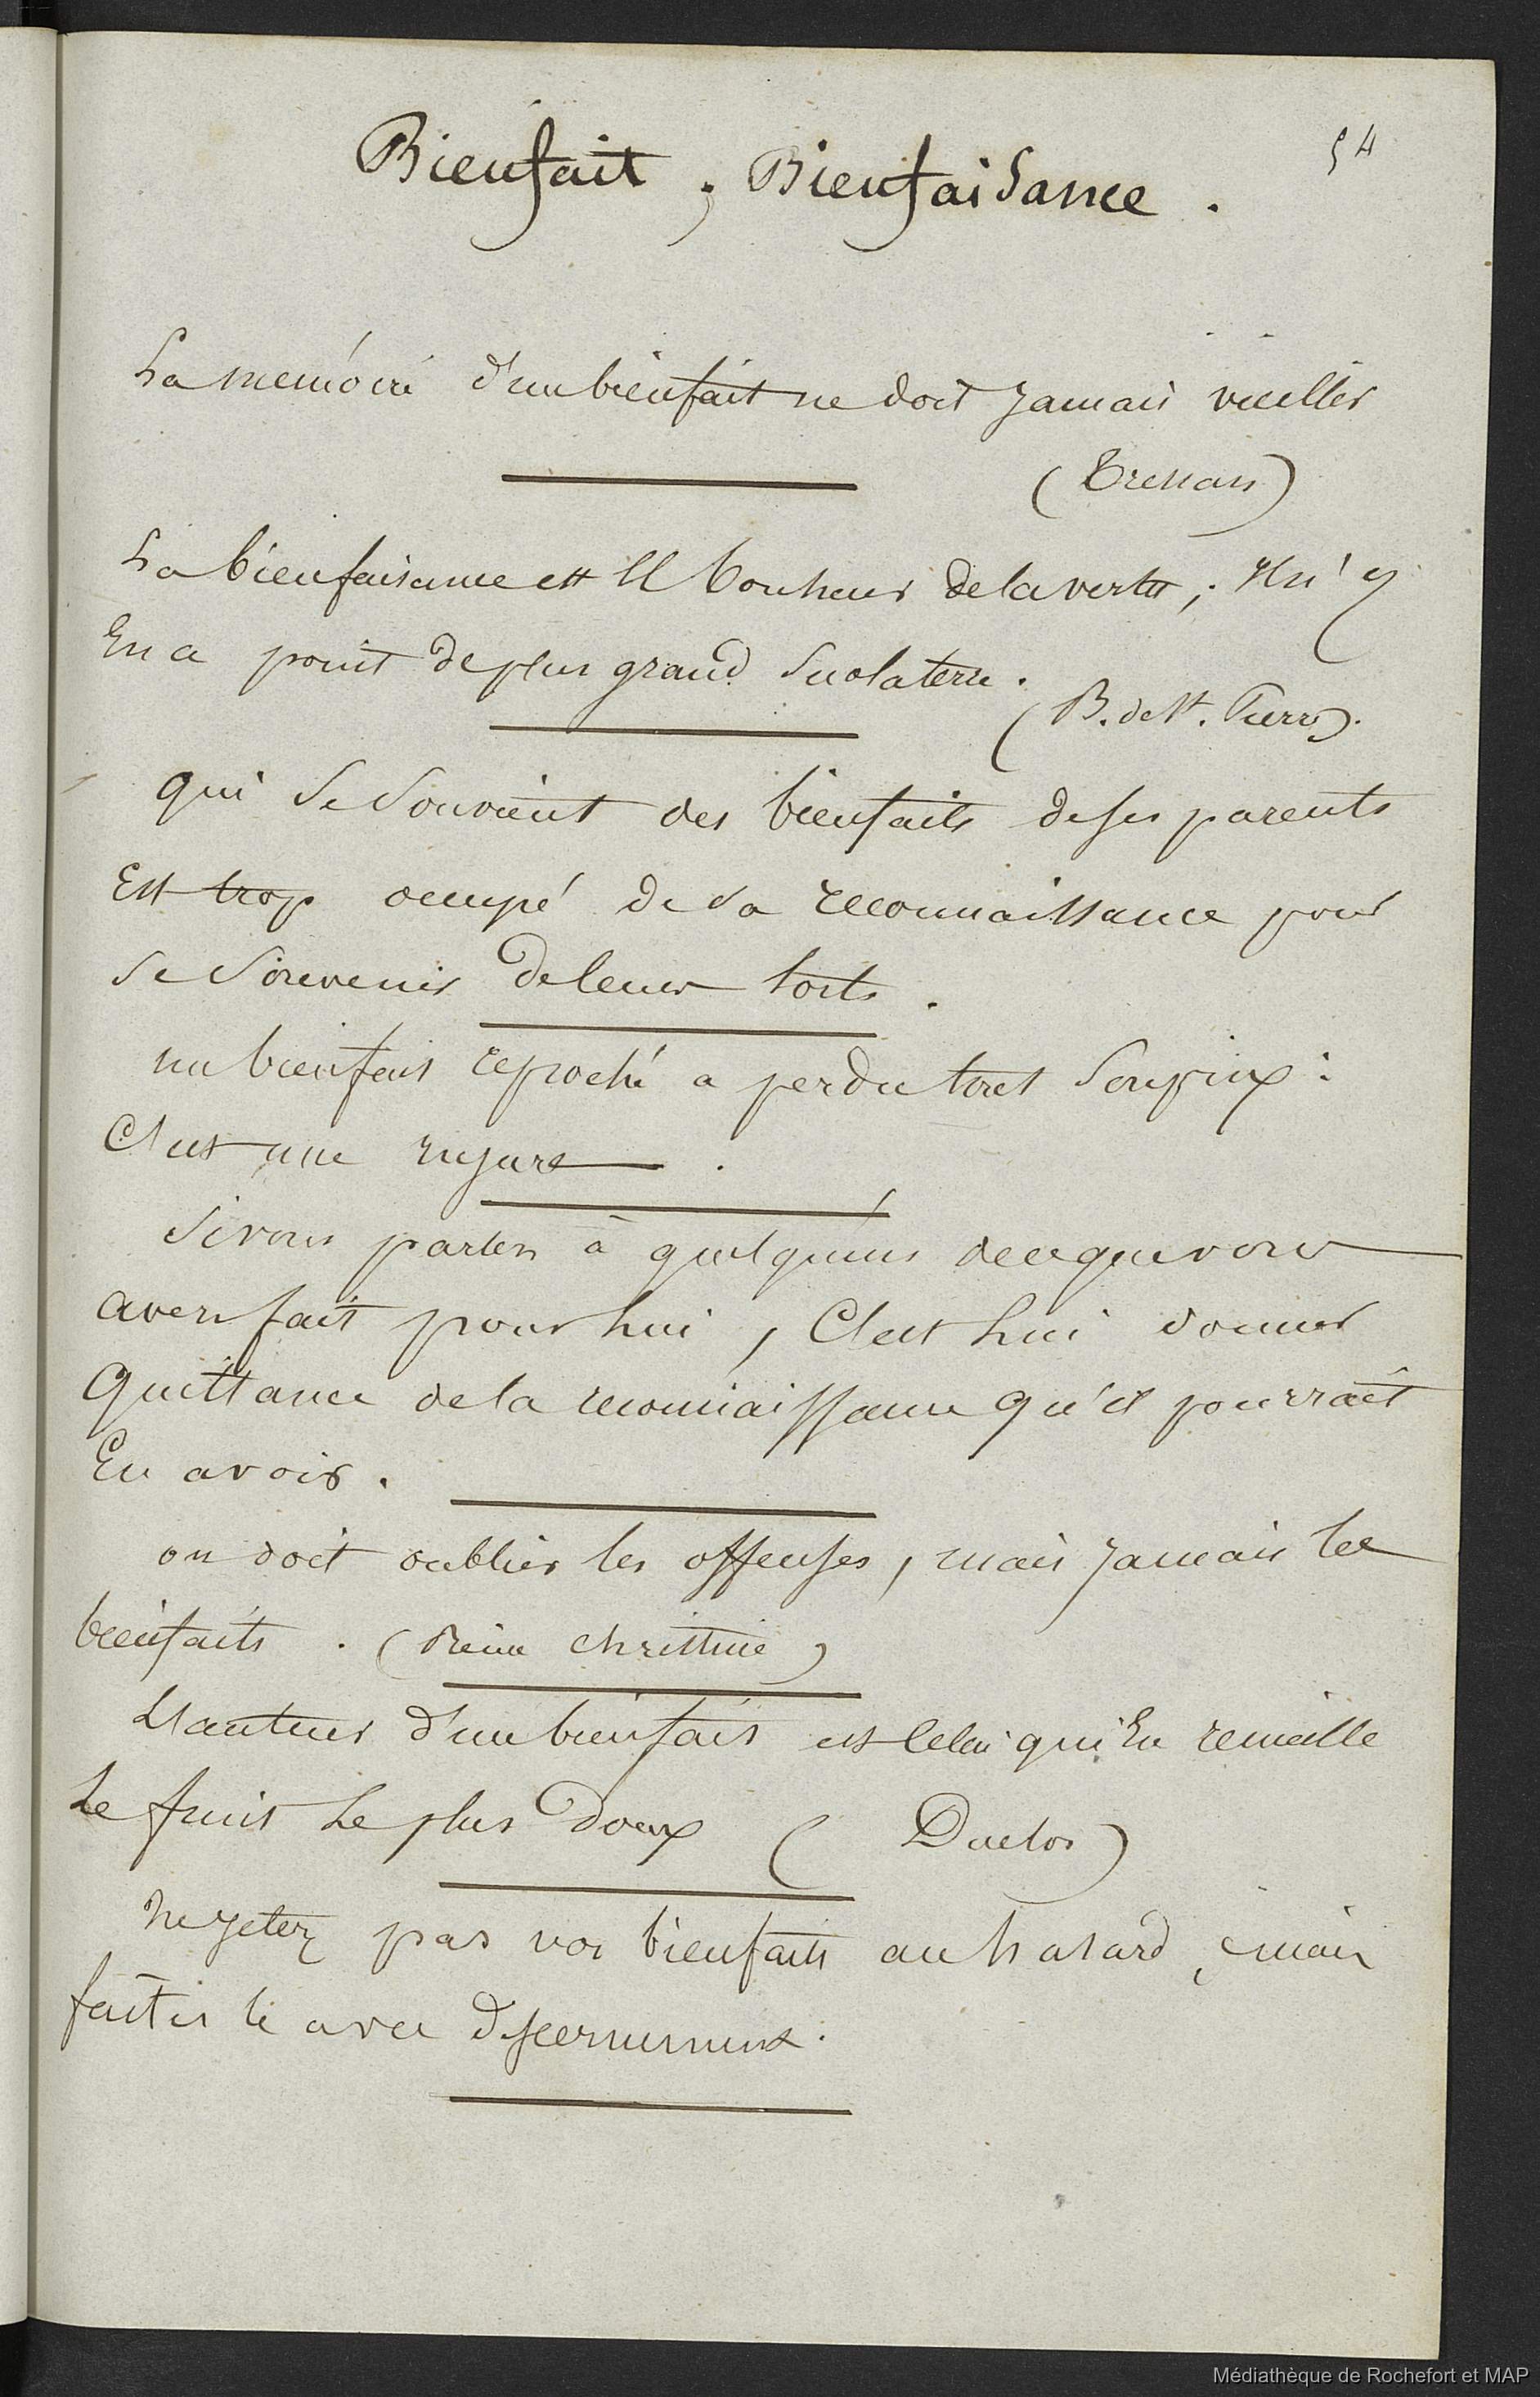 54
Bienfait ; Bienfaisance .
La memóire d'un bienfait ne doit jamais vieillir
(Tressan)
La bienfaisance est le bonheur de la vertu ; il n'y
En a point de plus grand sur la terre .
(B. de St. Pierre).
qui se souvient des bienfaits de ses parents
Est trop occupé de sa reconnaissance pour
se souvenir de leurs torts .
un bienfait reproché a perdu tout son prix :
C'est une injure .
si vous parlez à quelqu'un de ce que vous
avez fait pour lui , C'est lui donner
quittance de la reconnaissance qu'il pourrait
En avoir .
on doit oublier les offenses , mais jamais les
bienfaits . (Reine Christine)
L'auteur d'un bienfait est celui qui En recueille
Le fruit le plus doux ( Duclos )
ne jetez pas vos bienfaits au hasard , mais
faites le avec discernement .
Médiathèque de Rochefort et MAP